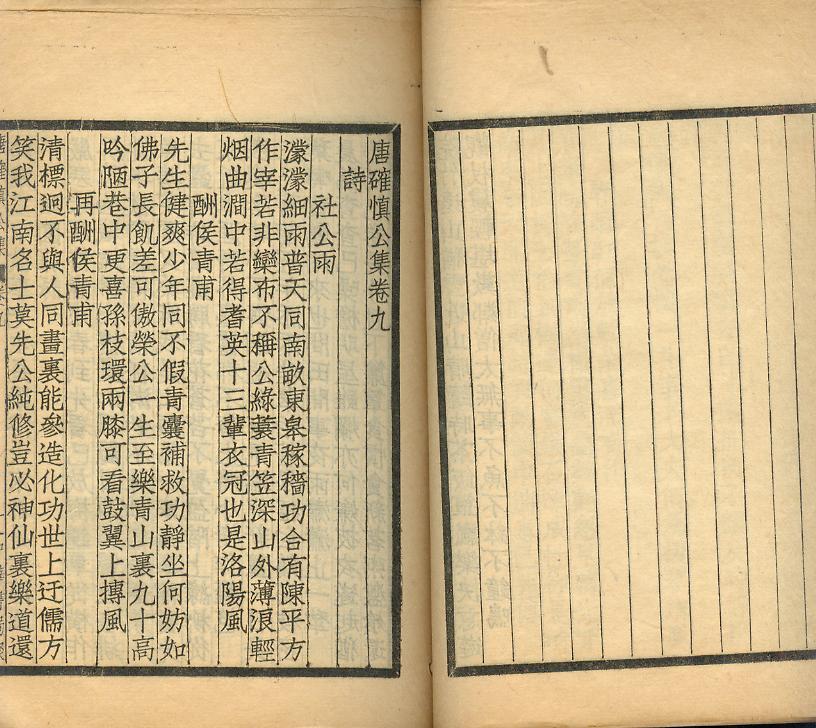 唐確慎公集卷九
詩
社公雨
濛濛細雨普天同南畝東皋稼穡功合有陳平方
作宰若非欒布不稱公綠蓑青笠深山外薄浪輕
烟曲澗中若得耆英十三輩衣冠也是洛陽風
酬侯青甫
先生健爽少年同不假青囊補救功靜坐何妨如
佛子長飢差可傲榮公一生至樂青山裏九十高
吟陋巷中更喜孫枝環兩膝可看鼓翼上摶風
再酬侯青甫
清標迥不與人同畫裏能參造化功世上迂儒方
笑我江南名士莫先公純修豈必神仙裏樂道還
唐確慎公集 卷九